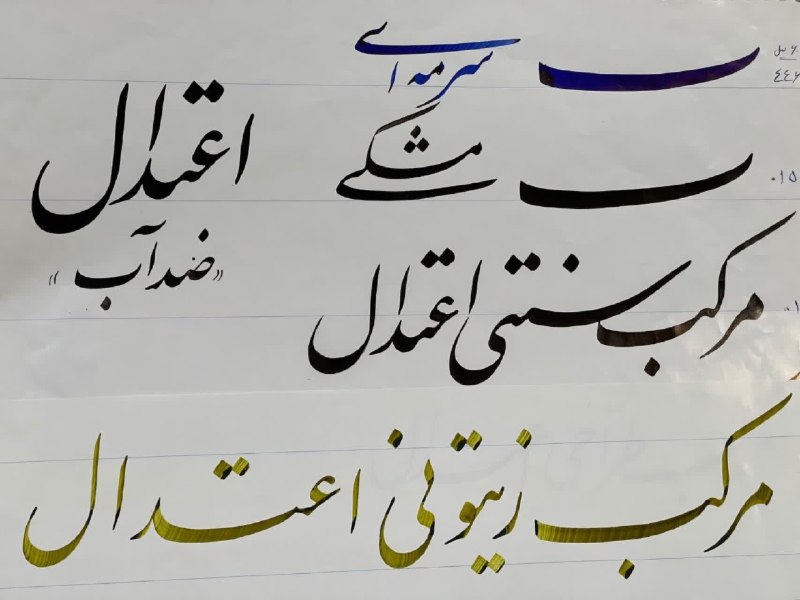 سرمه ای
مشکی
اعتدال
«ضد آب»
مرکب سنتی اعتدال
مرکب زیتونی اعتدال